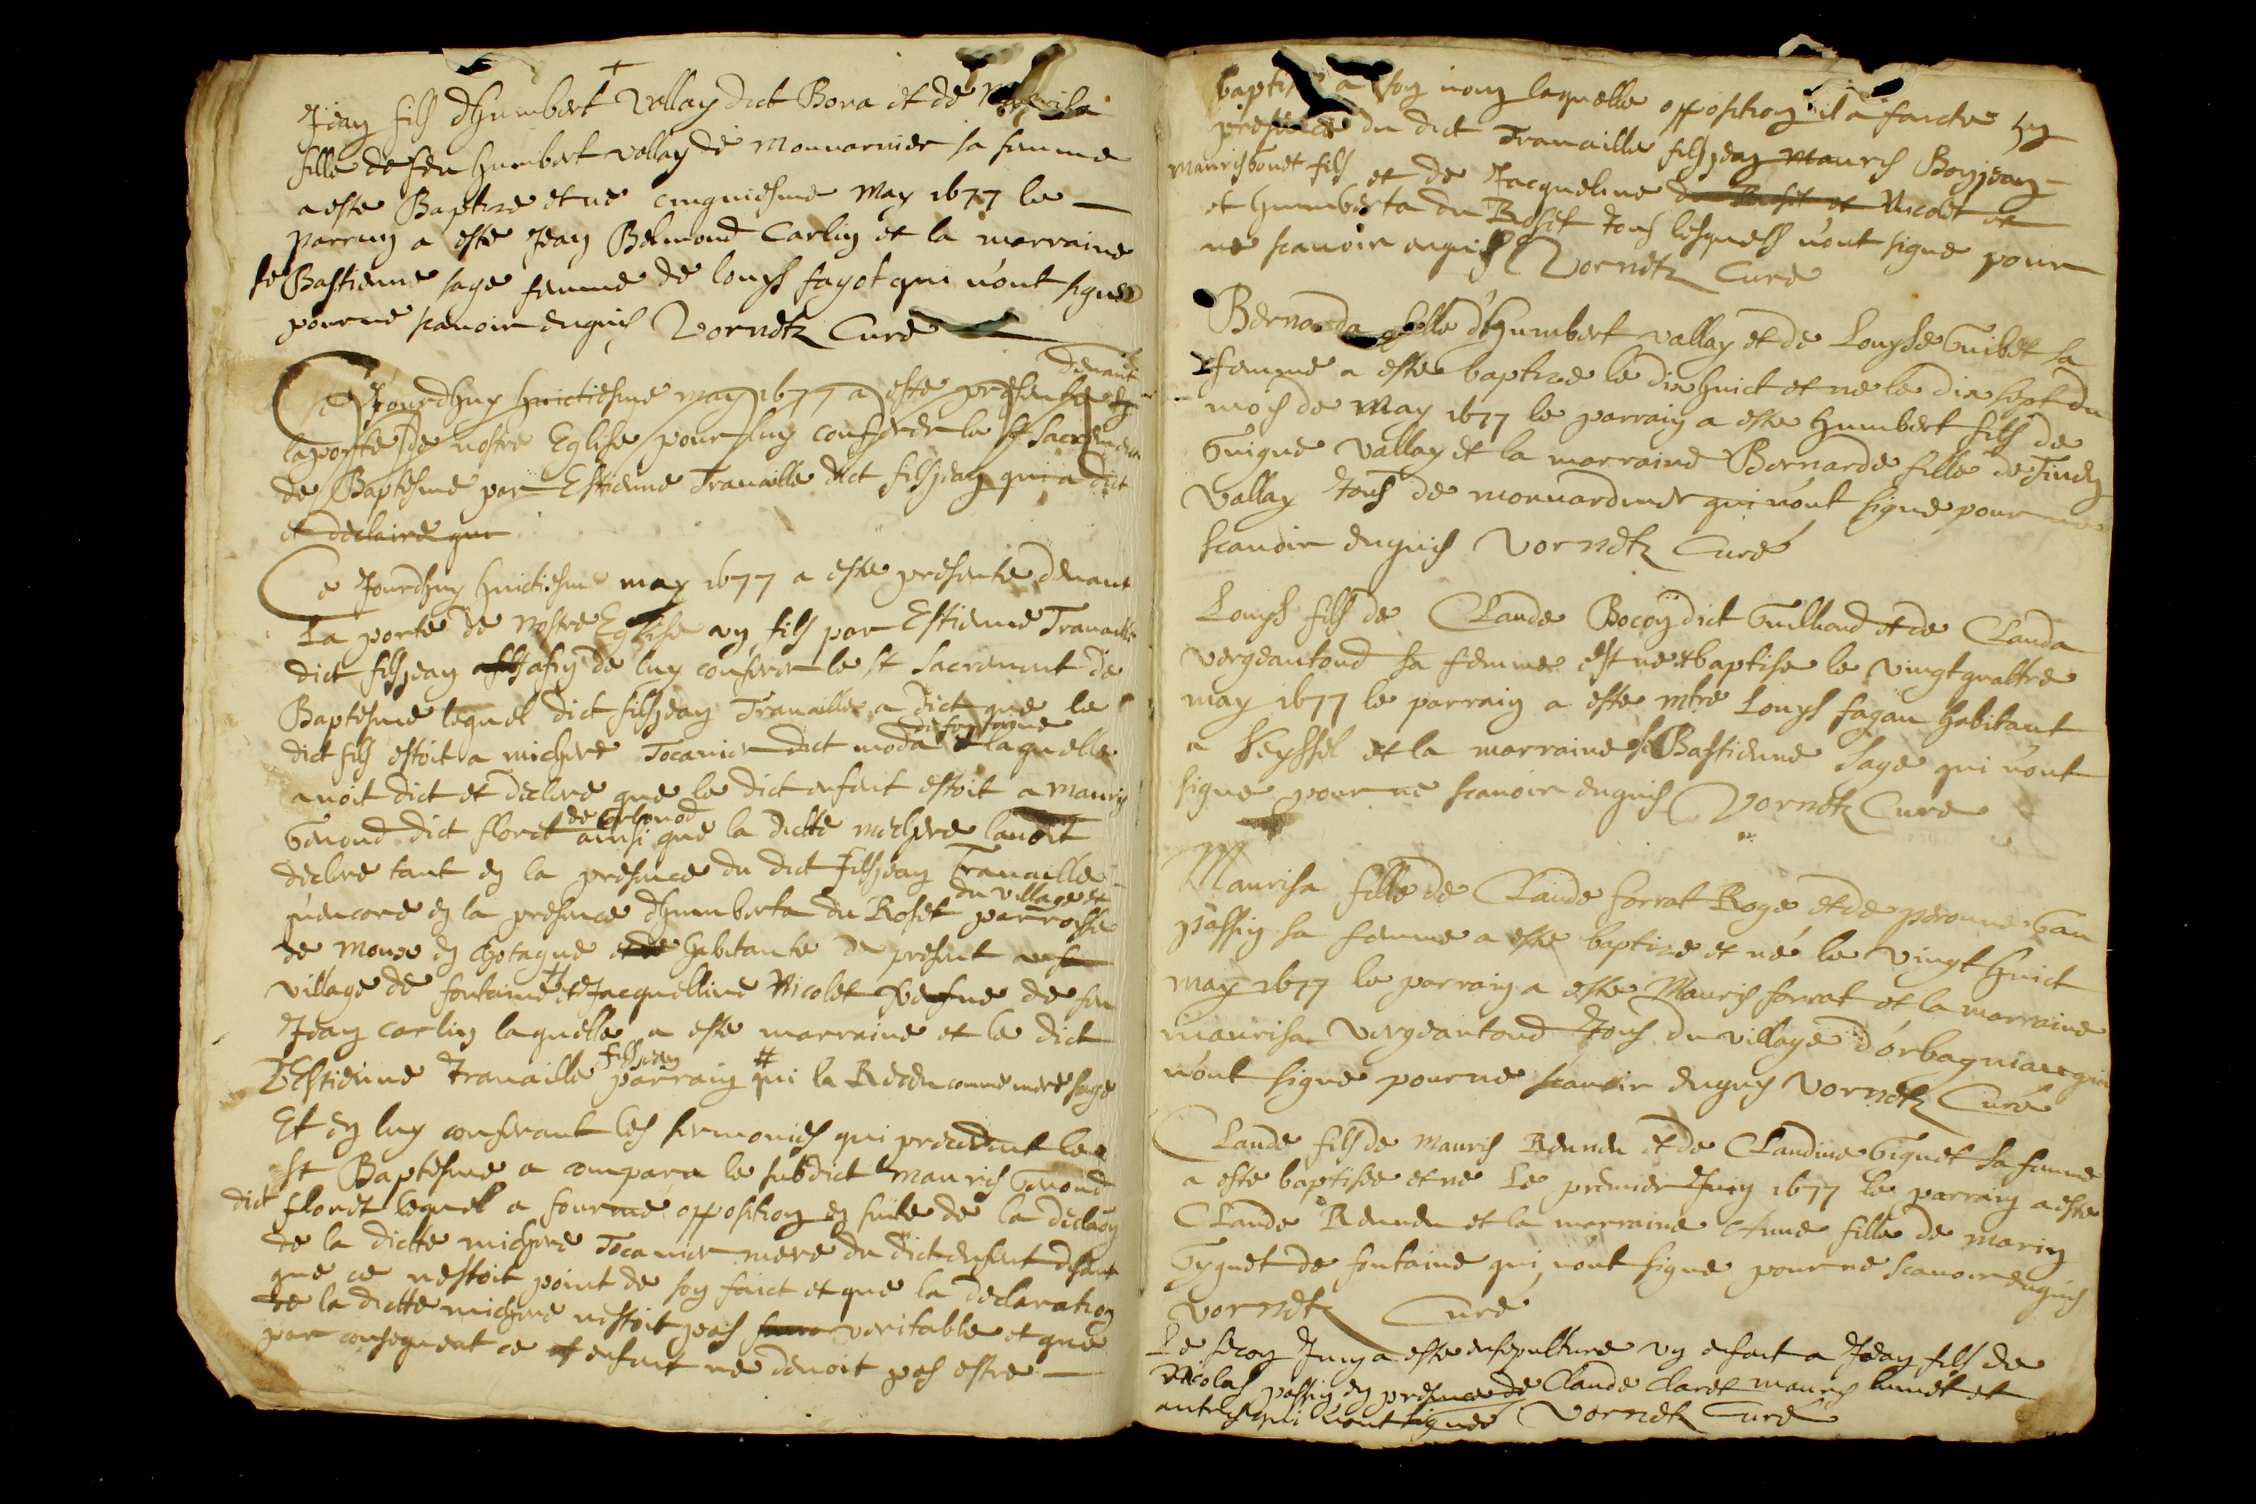 Jean fils dHumbert Vallay dict Bora et de Maurisa
fille de feu Humbert vallay de Monuarnier sa femme
a este Baptize et ne cinquiesme May 1677 le
parrain a este Jean Belmond Carlin et la marraine
Bastienne sage femme de Louys fagot qui n'ont signe
pour ne scauoir enquis Vornetz Curé
Ce Jourdhuy huictiesme may 1677 a este presente
deuant
la porte de nostre Eglise pour luy conferer le st Sacrement
de Baptesme par Estienne Trauaille dict filsjean qui a dict
et declaire que
Ce Jourdhuy huictiesme may 1677 a este presente deuant
La porte de nostre Eglise vn fils par Estienne Trauaille
dict filsjean afin de luy conferer le st Sacrement de
Baptesme lequel dict filsjean Trauaille a dict que le
dict fils estoit a michere Tocanier dict moda laquelle
auoit dict et declere que le dict enfant estoit a Mauris
Genoud dict floret ainsi que la dicte michere lauoit
declere tant en la presence du dict filsjean Trauaille
du village et
quencore en la presence dHumberta du Roset parroisse
de en habitante de present
village de fontaine et Jacquelline Nicolet vefue de feu
Jean Carlin laquelle a este marraine et le dict
filsjean
Estienne Trauaille parrain # qui la Receu comme mere sage
Et en luy conferant les sermonies qui precedent le
st Baptesme a compara le subdict Mauris Genoud
dict floret lequel a forme opposition en suite de la
de la dicte michere Tocanier mere du dict enfant disant
que ce nestoit point de son faict et que la declaration
de la dicte michere nestoit pas veritable et que
par consequent ce enfant ne deuoit pas estre
baptise a son nom laquelle opposition il a faicte en
presence du dict Trauaille filsjean Mauris Bonjean
Mauris bonet fils et de Jacqueline Nicolet et
et humberta du Roset tous lesquels n'ont signe pour
ne scauoir enquis Vornetz Curé
Bernarda fille d'Humbert vallay et de Louyse Guibet sa
femme a este baptize le dix huict et ne le dix sept du
mois de May 1677 le parrain a este Humbert fils de
Guigue Vallay et la marraine Bernarde fille de
Vallay tous de monuardnier qui n'ont signe pour ne
scauoir enquis Vornetz Curé
Louys fils de Claude Bocon dict Guilliand et de Clauda
vergeantoud sa femme est ne et baptise le vingt quattre
may 1677 le parrain a este mtre Louys fagan habitant
a Seyssel et la marraine Bastienne Sage qui n'ont
signe pour ne scauoir enquis Vornetz Cure
Maurisa fille de Claude forrat Roge et de peronne Gau
passin sa femme a este baptize et né le vingt huict
may 1677 le parrain a este Mauris forrat et la marraine
maurisa Vergeantoud tous du village d'orbagniac qui
n'ont signe pour ne scauoir enquis Vornetz Curé
Claude fils de Mauris Reunen et de Claudine Giguet sa femme
a este baptisee et ne Le premier Juin 1677 le parrain a este
Claude Reunen et la marraine Anne fille de marin
Gyguet de fontaine qui n'ont signe pour ne scauoir enquis
Vornetz Cure
Le secon Juin a este ensepulture vn enfant a Jean fils de
Nicolas passin en presence de Claude Claret Mauris et
autres qui n'ont signer Vornetz Curé